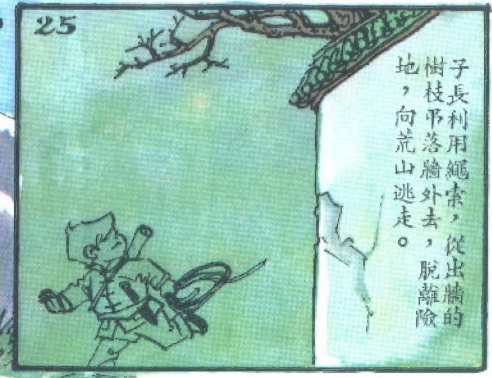 25
子長利用繩索，從出牆的
樹枝吊落牆外去，脫離險
地，向荒山逃走。